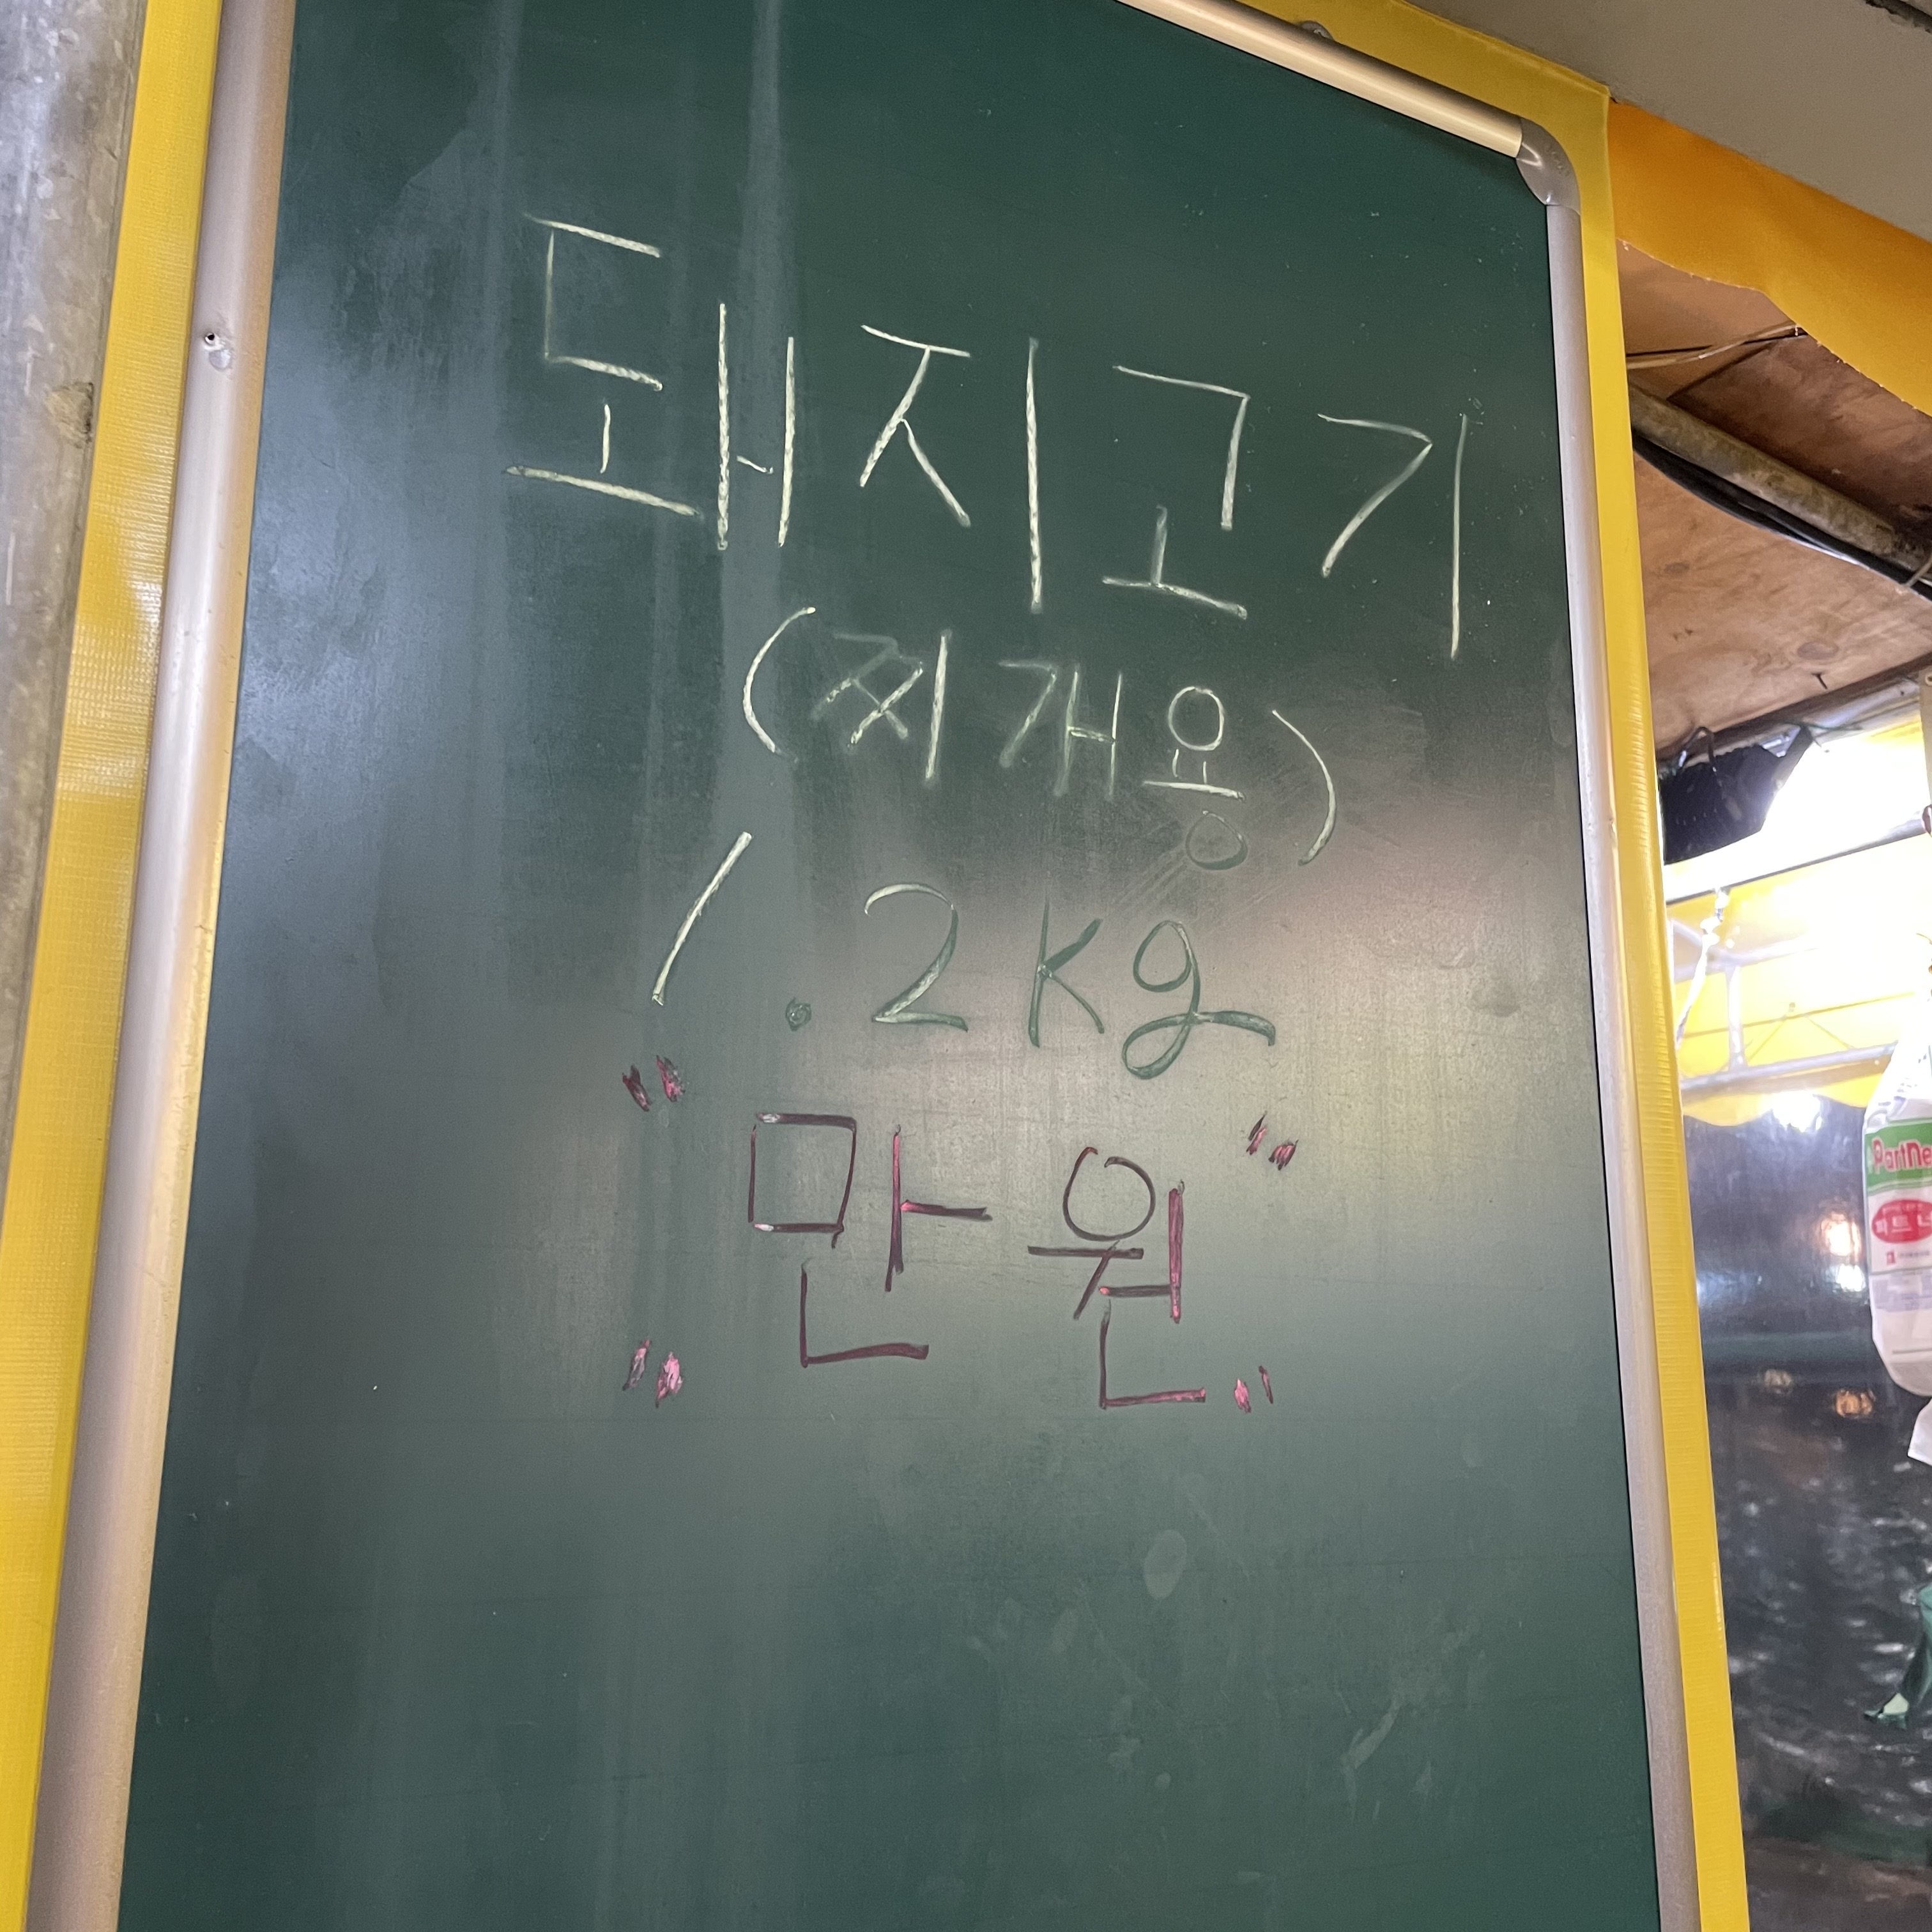 돼지고기
(찌개용)
1.2kg
"만원"
PartNe
파트너